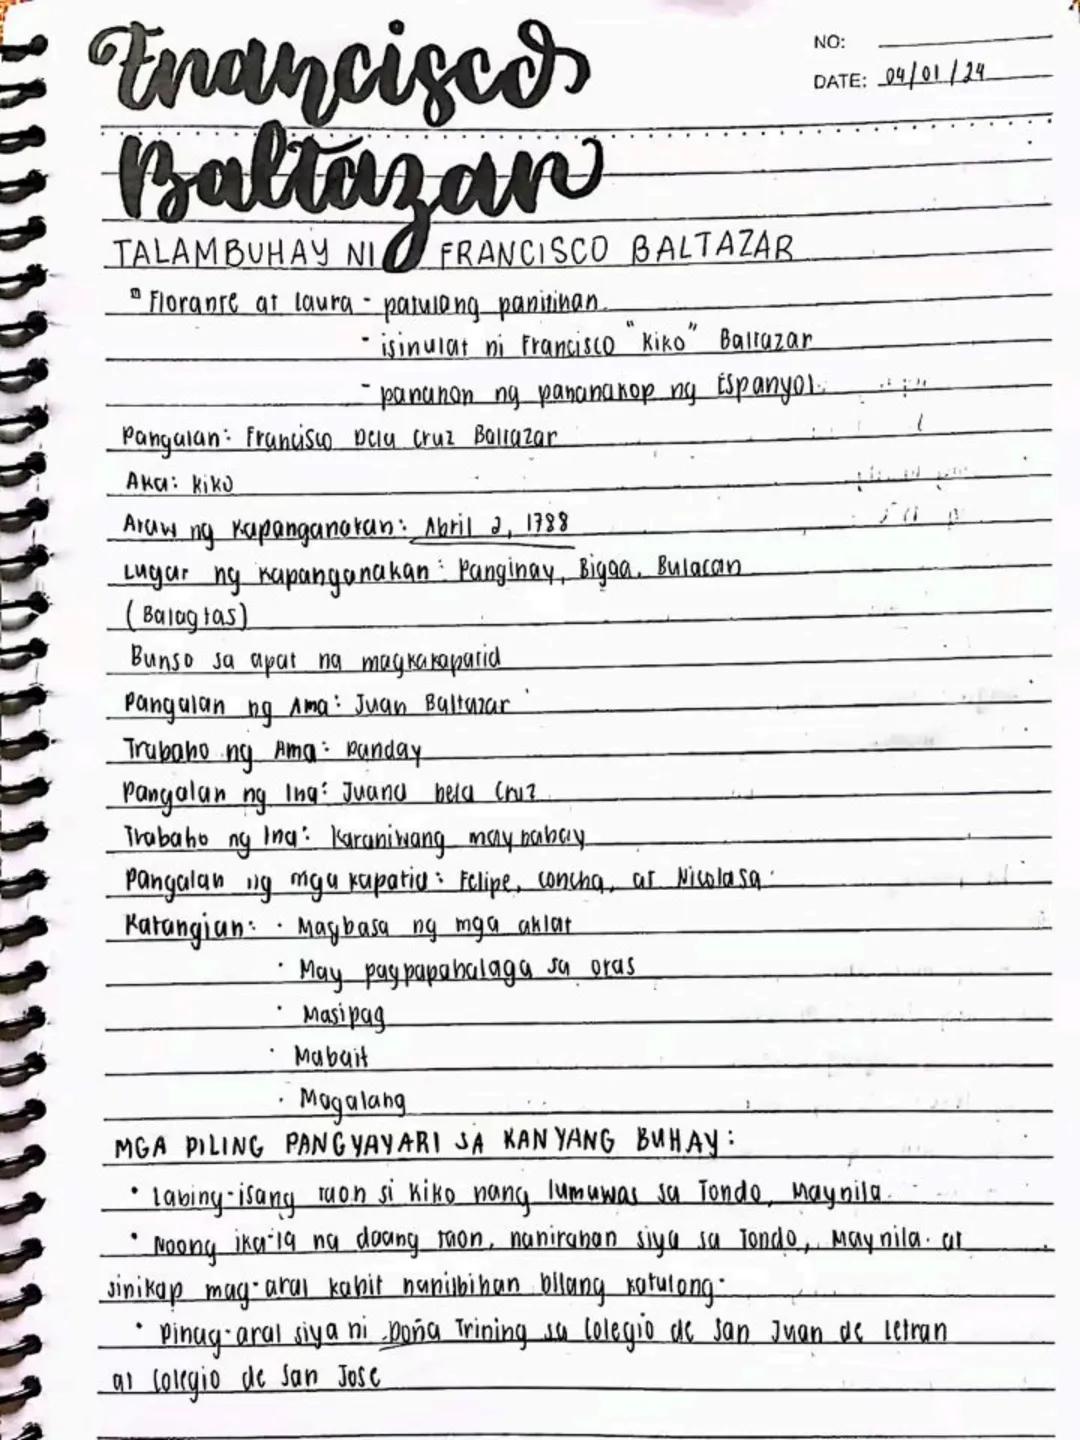 Francisco
NO:
DATE: 04/01/24
Baltazar
TALAMBUHAY NI FRANCISCO BALTAZAR
Florante at laura - patulang panitikan.
- isinulat ni Francisco "Kiko" Baltazar
- panahon ng pananakop ng Espanyol.
Pangalan: Francisco Dela Cruz Baltazar
Aka: Kiko
Araw ng Kapanganakan: Abril 2, 1788
Lugar ng Kapanganakan: Panginay, Bigaa, Bulacan
(Balagtas)
Bunso sa apat na magkakapatid
Pangalan ng Ama: Juan Baltazar
Trabaho ng Ama: Panday
Pangalan ng Ina: Juana Dela Cruz
Trabaho ng Ina: Karaniwang maybahay
Pangalan ng mga kapatid: Felipe, Concha, at Nicolasa.
Katangian: · Magbasa ng mga aklat
· May pagpapahalaga sa oras
· Masipag
· Mabait
· Magalang
MGA PILING PANGYAYARI SA KANYANG BUHAY:
· Labing-isang taon si Kiko nang lumuwas sa Tondo, Maynila.
· Noong ika-19 na daang taon, nanirahan siya sa Tondo, Maynila. at
sinikap mag-aral kahit nanilbihan bilang katulong.
· Pinag-aral siya ni Doña Trining sa Colegio de San Juan de Letran
at Colegio de San Jose